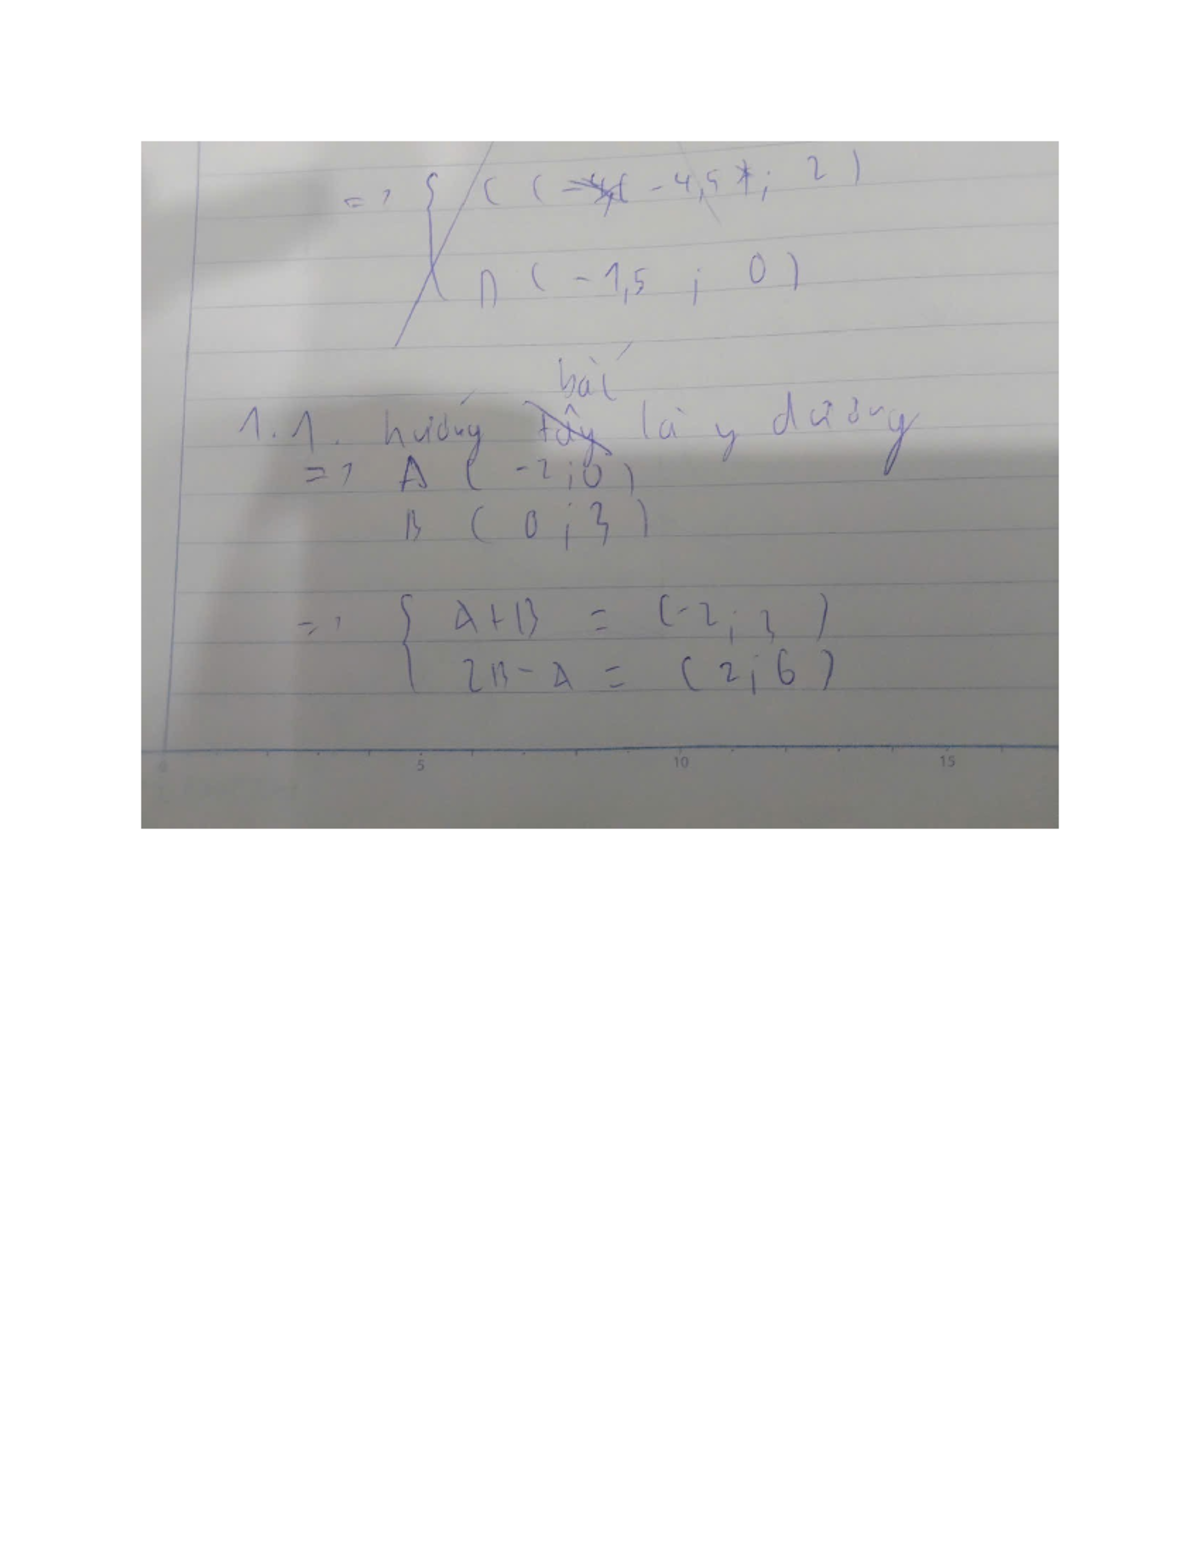 => { C ( - 4,5 ; 2 )
D ( - 1,5 ; 0 )
bắc
1.1. hướng tây là y dương
=> A ( -2 ; 0 )
B ( 0 ; 3 )
=> { A+B = (-2 ; 3 )
2B - A = ( 2 ; 6 )
5 10 15